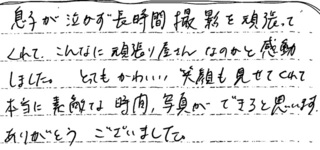 息子が泣かず長時間撮影を頑張って
くれて、こんなに頑張り屋さんなのかと感動
しました。とてもかわいい笑顔も見せてくれて
本当に素敵な時間、写真ができると思います。
ありがとうございました。